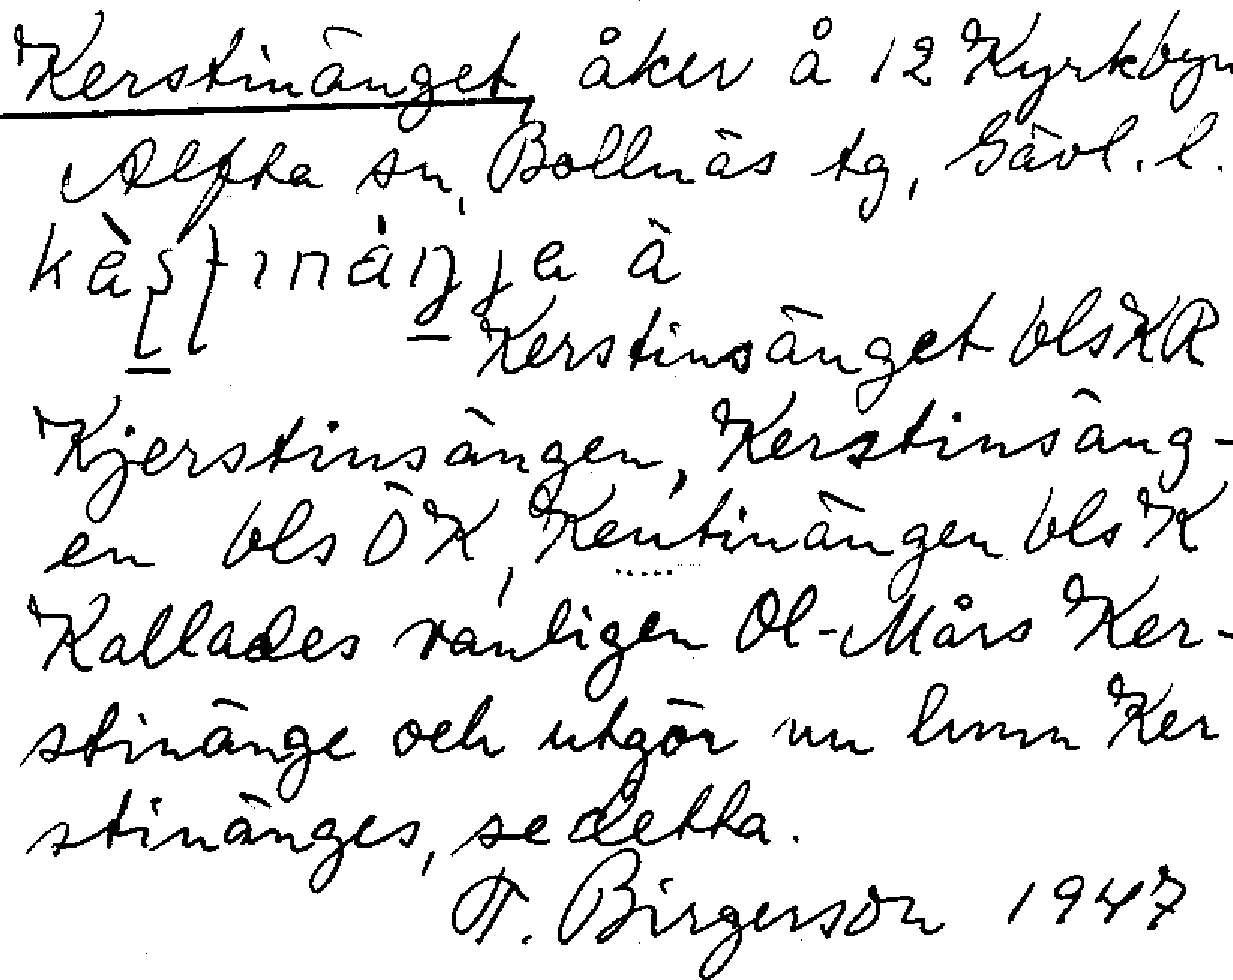 Kerstinänget, åker å 12 Kyrkbyn
Alfta sn, Bollnäs tg, Gävl. l.
Kerstinsänget blsKR
Kjerstinsängen, Kerstinsäng-
en bls ÖK, Kentinängen blsK
Kallades vanligen Ol-Mårs Ker-
stinänge och utgör nu lmn Ker
stinänges, se detta.
T. Birgerson 1947